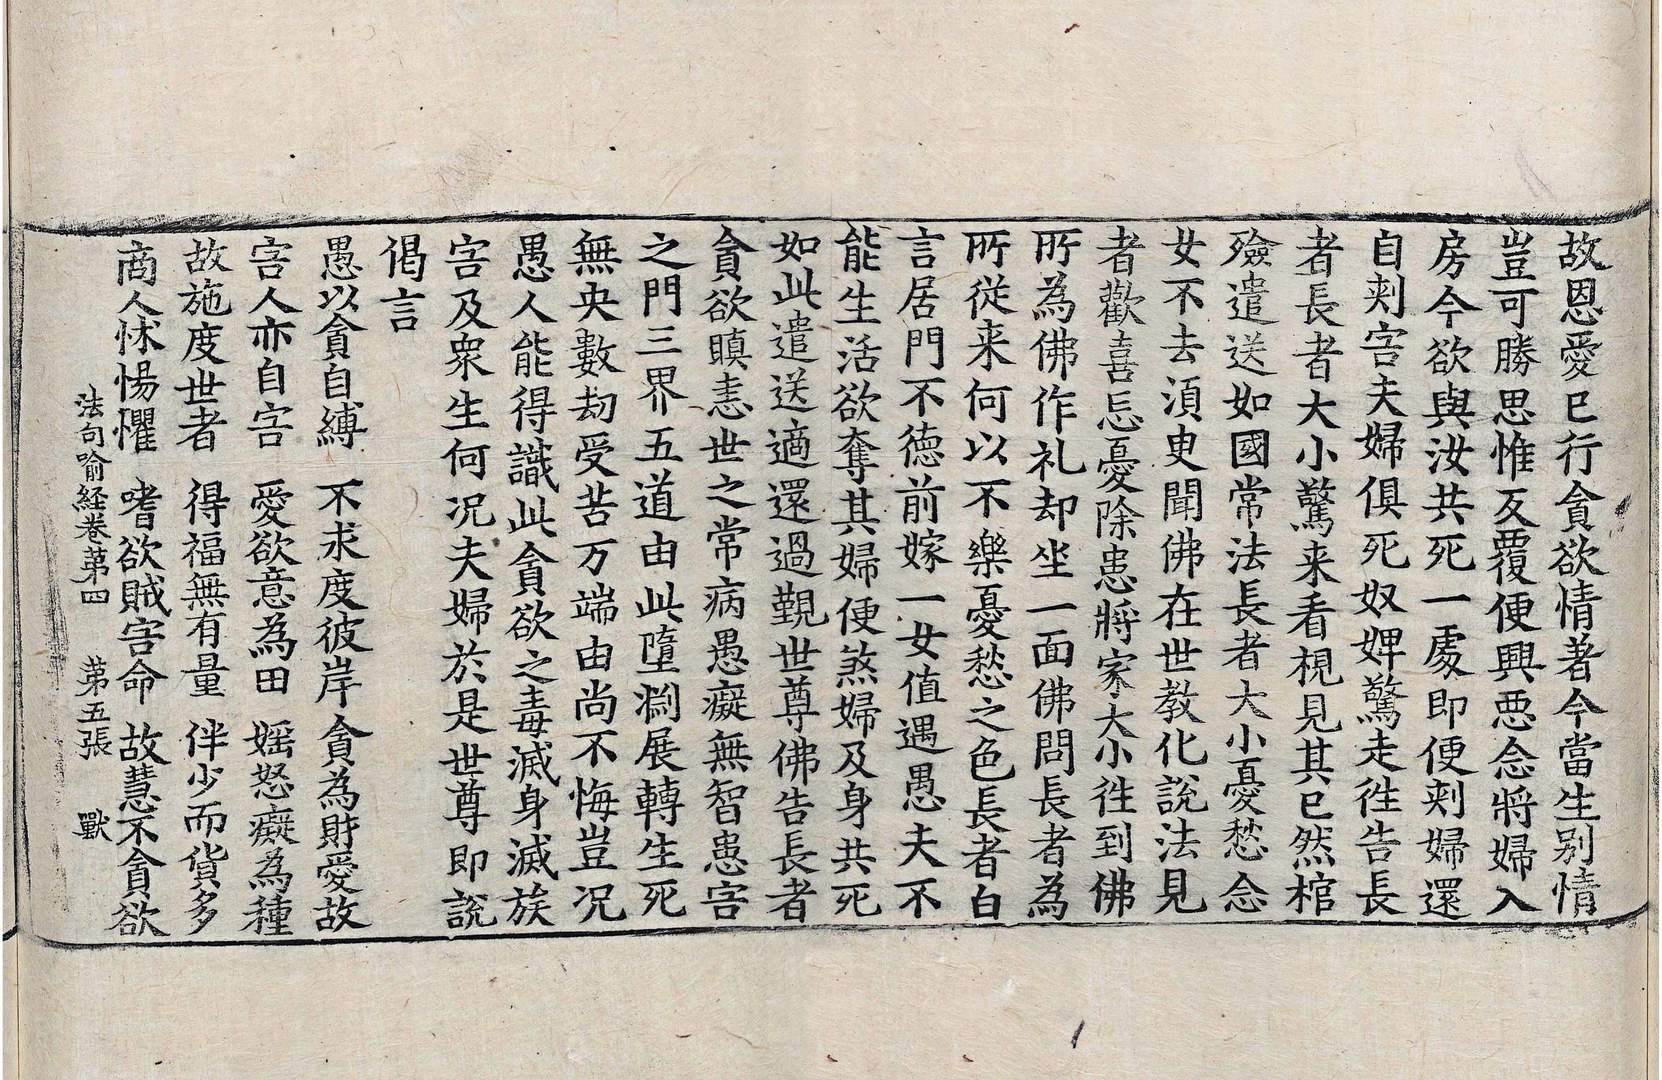 故恩愛已行貪欲情著今當生別情
豈可勝思惟反覆便興惡念將婦入
房今欲與汝共死一處即便刾婦還
自刾害夫婦俱死奴婢驚走徃告長
者長者大小驚来看視見其已然棺
殮遣送如國常法長者大小憂愁念
女不去湏臾聞佛在世教化說法見
者歡喜忘憂除患將家大小徃到佛
所為佛作礼却坐一面佛問長者為
所従来何以不樂憂愁之色長者白
言居門不德前嫁一女值遇愚夫不
能生活欲奪其婦便煞婦及身共死
如此遣送適還過覲世尊佛告長者
貪欲瞋恚世之常病愚癡無智患害
之門三界五道由此墮渕展轉生死
無央數劫受苦万端由尚不悔豈況
愚人能得識此貪欲之毒滅身滅族
害及衆生何况夫婦於是世尊即說
偈言
愚以貪自縛　不求度彼岸　貪為財愛故
害人亦自害　愛欲意為田　婬怒癡為種
故施度世者　得福無有量　伴少而貨多
商人怵惕懼　嗜欲賊害命　故慧不貪欲
法句喻経卷苐四　苐五張　獸